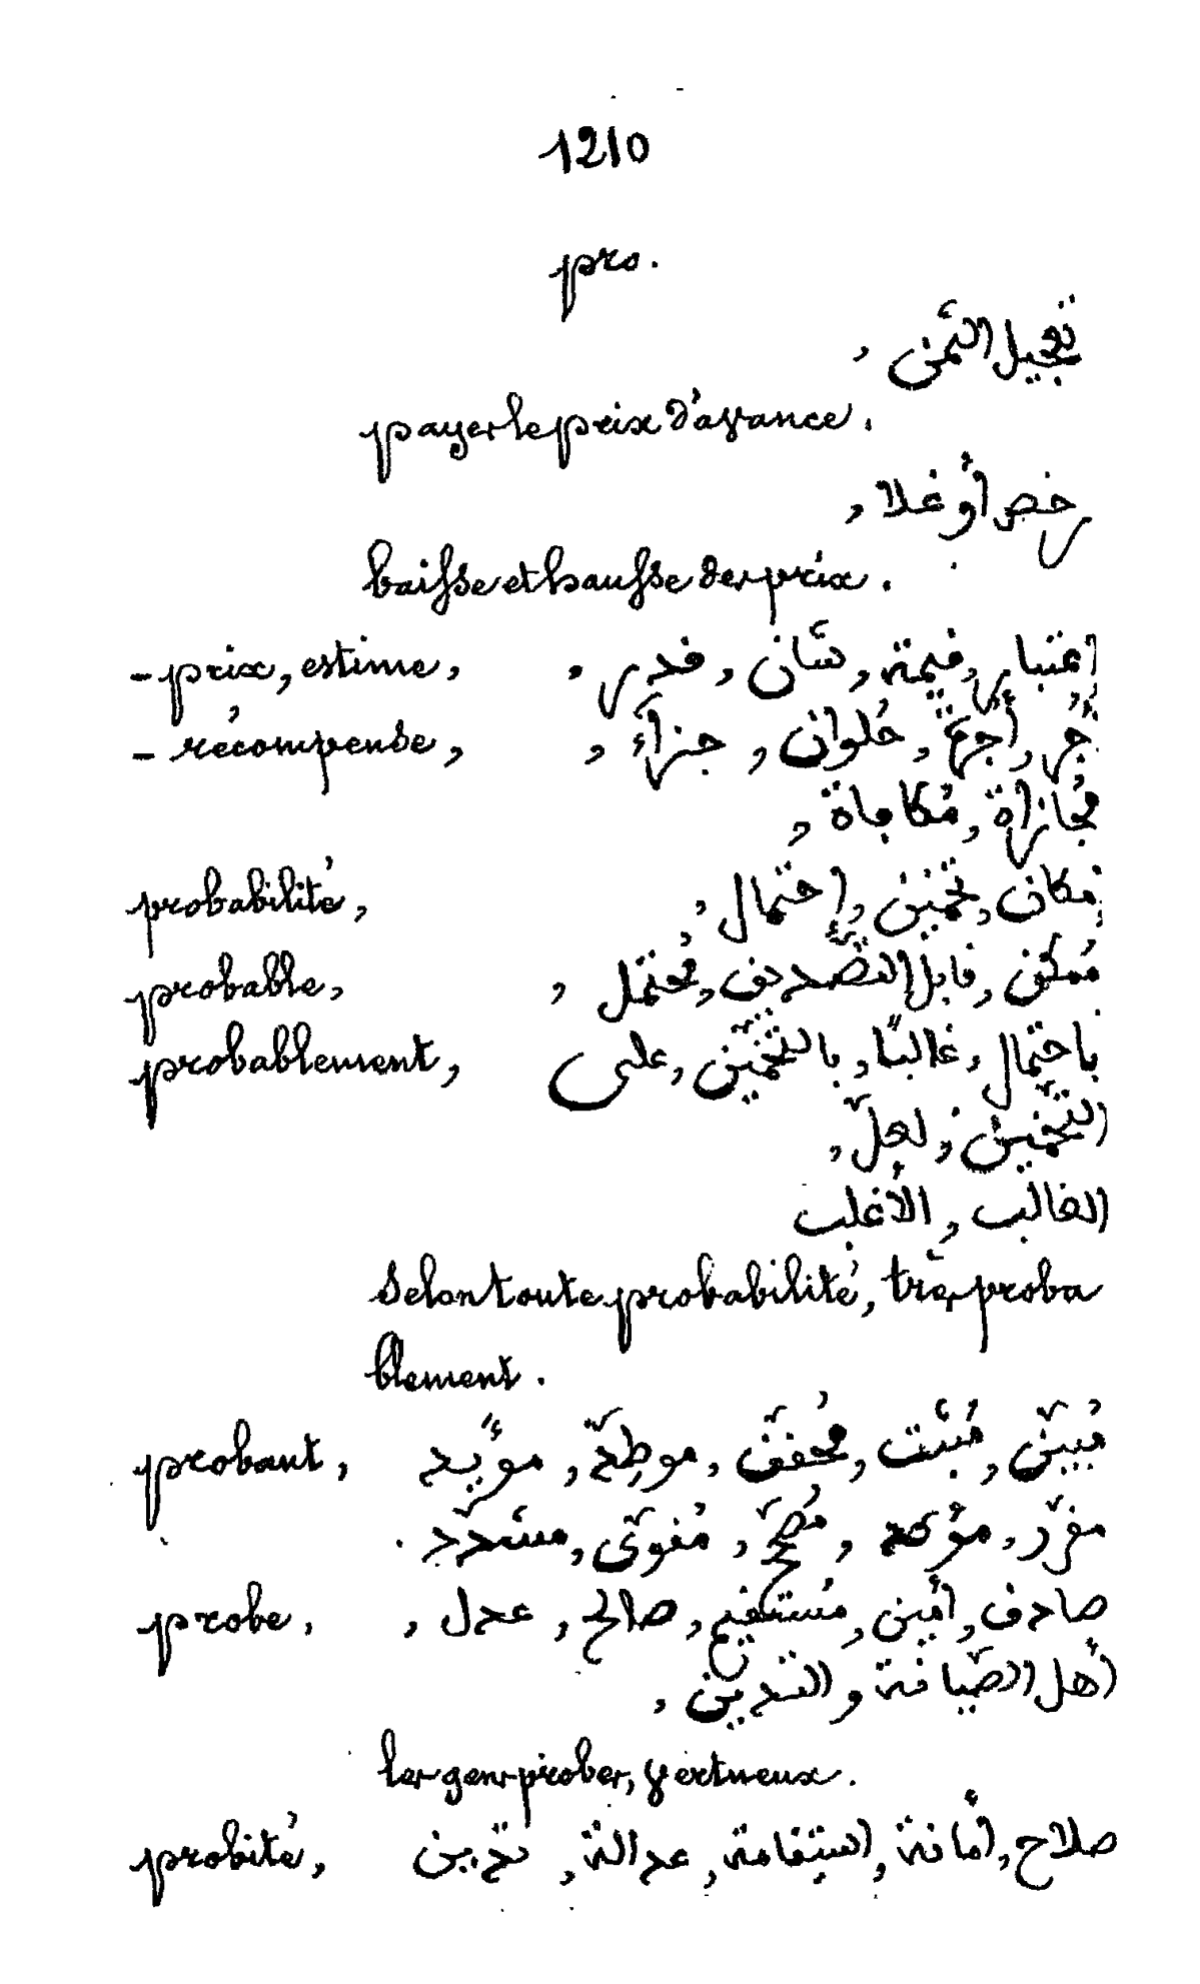 1210
pro.
تعجيل الثَّمن ,
payer le prix d'avance.
رخص أو غلا ,
baisse et hausse des prix.
- prix, estime, اعتبار, قيمة, شَان, قدر.
- récompense, أُجُر, أُجْرَة, حُلوان, جزآء,
مُجازاة, مُكافاة,
probabilité, إمكان, تخمين, إحتمال,
probable, مُمكن, قابل التّصديق, مُحتمل,
probablement, باحتمال, غالبًا, بالتّخمين, على
التّخمين, لعلّ,
الغالب, الأغلب
Selon toute probabilité, très proba
blement.
probant, مُبيّن, مُثبت, مُحقّق, موطّد, مؤيّد
مقرّر, مؤكد, مُصحّح, مُقوّى, مسَدّد.
probe, صادق, أمين, مُستقيم, صالح, عدل,
أهل الصّيانة والتديّن,
les gens probes, vertueux.
probité, صلاح, أمانة, استقامة, عدالة, تديّن